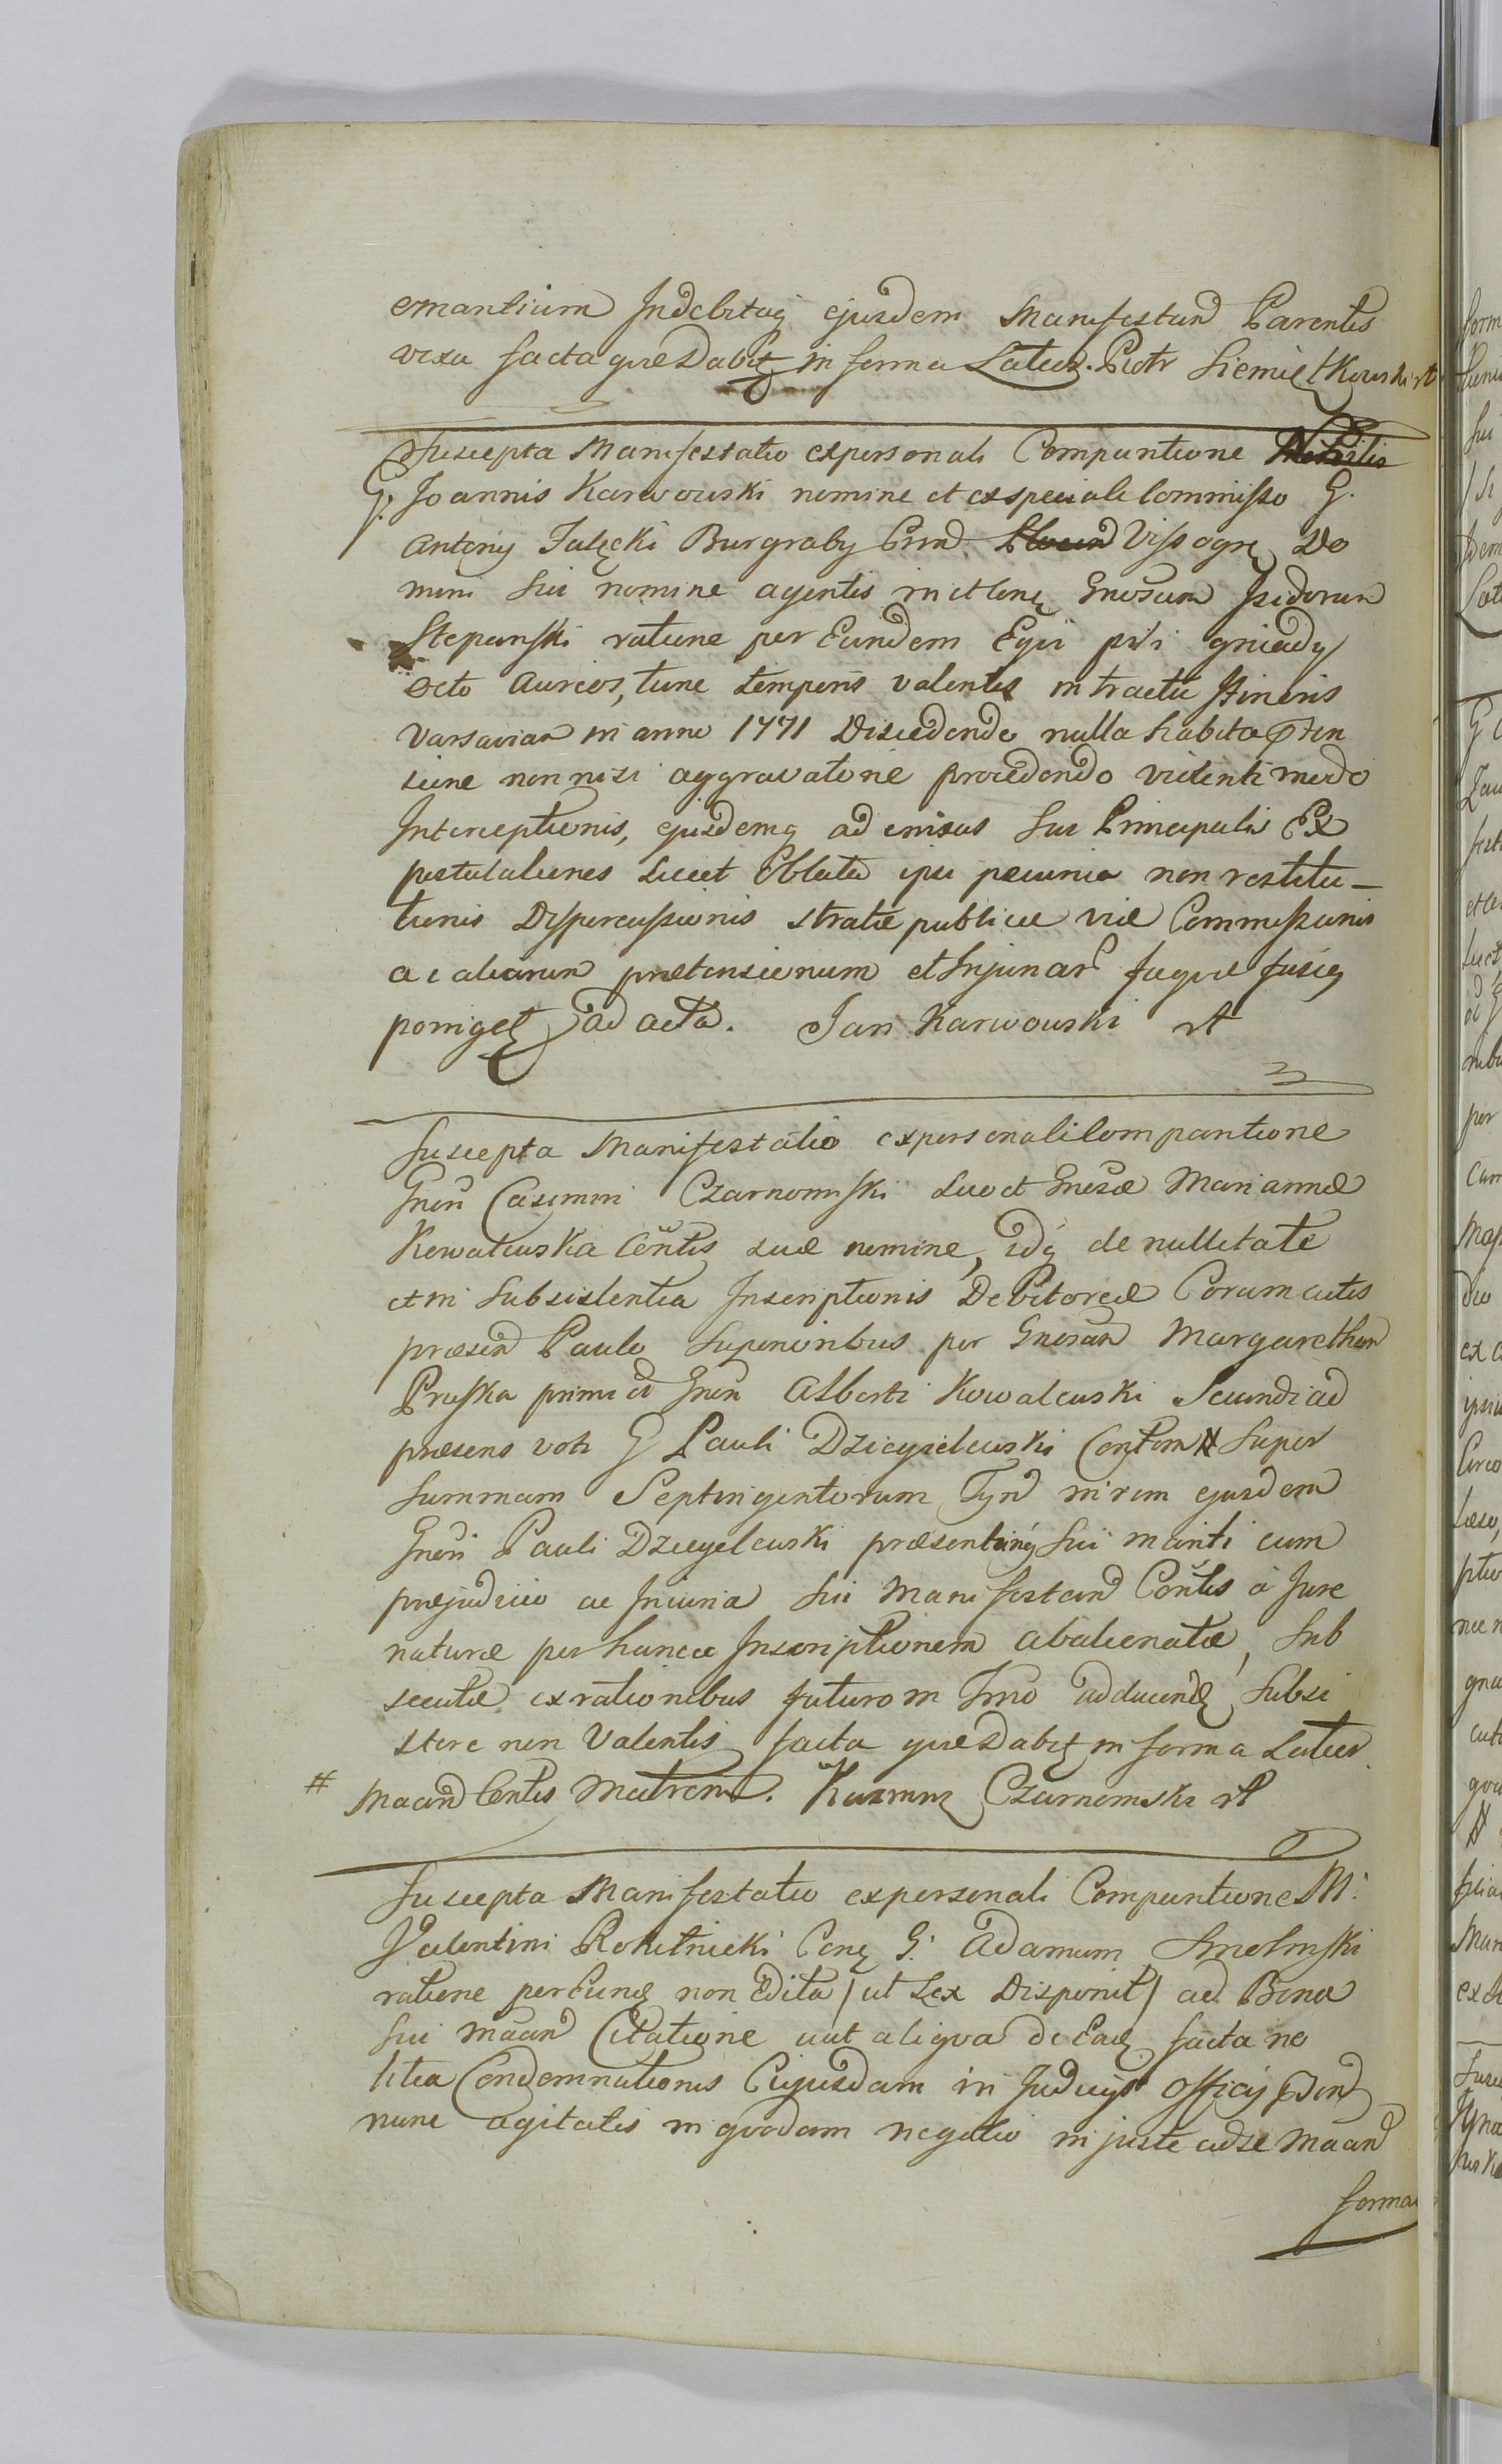 emantium Indebitaq ejusdem Manifestand Parentis
vexa facta quæ Dabit in forma Latior. Piotr Siemiętkowski rt
Suscepta Manifestatio ex personali Compantione Nobilis
G. Joannis Karwowski nomine et ex speciali Commisso G.
Antonij Jalęcki Burgraby Visogr Do
mini sui nomine agentis in et Gnosum Isidorum
Stepanski ratione per Eundem Equi gniady
octo Aureos, tunc temporis valentis in tractu Itineris
Varsaviam in anno 1771 Discedendo nulla habita
sione non nisi aggravatorie procedendo violenti modo
Interceptionis, ejusdemq ad sui Principalis Ex
postulationes Licet Oblata ipsi pecunia non restitu-
tionis Dispercussionis stratæ publicæ viæ Commissionis
ac aliarum prætensionum et Injuriar fusiq
porriget ad acta. Jan Karwowski rt
Suscepta Manifestatio ex personali Compantione
Gnosi Casimiri Czarnomski suo et Gnosæ Mariannæ
Kowalewska Contis suæ nomine, idq de nullitate
et in Subsistentia Inscriptionis Debitoreæ Coram actis
præsend Paulo Superioribus per Gnosam Margaretham
Pruska primi et Gnosi Alberti Kowalewski Secundi ad
præsens voti G Pauli Dziegielewski # Super
Summam Septingentorum Tynf in rem ejusdem
Gnosi Pauli Dziegielewski præsentium sui mariti cum
præjudicio ac Iniuria sui Manifestand Contis à Jure
naturæ per hancce Inscriptionem abalienatæ, Sub
secutæ ex rationibus futuro in Tmo adducend, Subsi
stere non Valentis facta quæ Dabit in forma Latior
# Maand Contis Matrem. Kazimirz Czarnomski rt
Suscepta Manifestatio ex personali Compantione M:
Valentini Rokitnicki Conq G: Adamum Smolinski
ratione per Eund non Edita / ut Lex Disponit / ad Bona
sui Maand Citatione aut aliqua de Ead facta no
titia Condemnationis Cujusdam in Judicijs Officij
nunc agitatis in quodam negotio injuste ad se Maand
forma